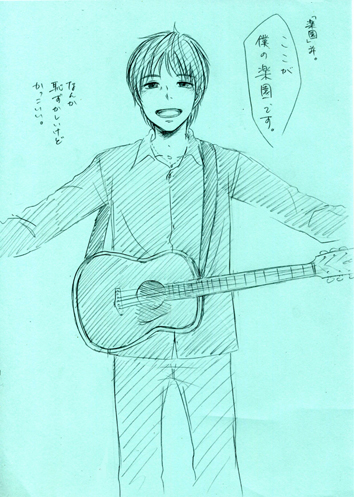 「楽園」弁。
ここが
僕の楽園です。
なんか
恥ずかしいけど
かっこいい。